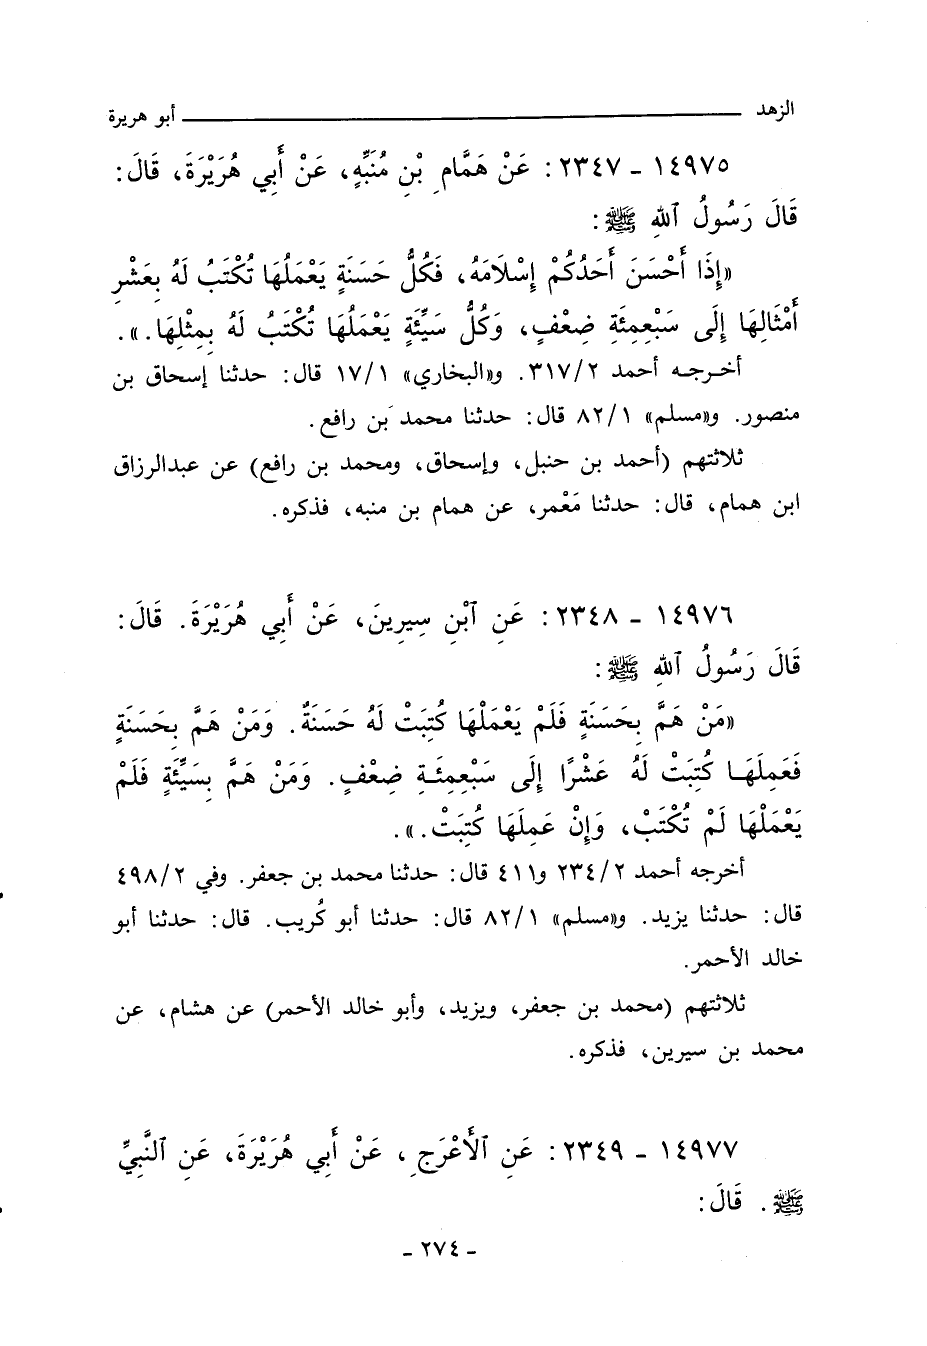 الزهد ــــــــــــــــــــ أبو هريرة
١٤٩٧٥ ـ ٢٣٤٧ : عَنْ هَمَّامِ بْنِ مُنَبِّهٍ، عَنْ أَبِي هُرَيْرَةَ، قَالَ:
قَالَ رَسُولُ ٱللهِ ﷺ:
«إِذَا أَحْسَنَ أَحَدُكُمْ إِسْلَامَهُ، فَكُلُّ حَسَنَةٍ يَعْمَلُهَا تُكْتَبُ لَهُ بِعَشْرِ
أَمْثَالِهَا إِلَى سَبْعِمِئَةِ ضِعْفٍ، وَكُلُّ سَيِّئَةٍ يَعْمَلُهَا تُكْتَبُ لَهُ بِمِثْلِهَا.».
أخرجه أحمد ٣١٧/٢. و«البخاري» ١٧/١ قال: حدثنا إسحاق بن
منصور. و«مسلم» ٨٢/١ قال: حدثنا محمد بن رافع.
ثلاثتهم (أحمد بن حنبل، وإسحاق، ومحمد بن رافع) عن عبدالرزاق
ابن همام، قال: حدثنا مَعْمر، عن همام بن منبه، فذكره.
١٤٩٧٦ ـ ٢٣٤٨ : عَنِ ٱبْنِ سِيرِينَ، عَنْ أَبِي هُرَيْرَةَ. قَالَ:
قَالَ رَسُولُ ٱللهِ ﷺ:
«مَنْ هَمَّ بِحَسَنَةٍ فَلَمْ يَعْمَلْهَا كُتِبَتْ لَهُ حَسَنَةٌ. وَمَنْ هَمَّ بِحَسَنَةٍ
فَعَمِلَهَا كُتِبَتْ لَهُ عَشْرًا إِلَى سَبْعِمِئَةِ ضِعْفٍ. وَمَنْ هَمَّ بِسَيِّئَةٍ فَلَمْ
يَعْمَلْهَا لَمْ تُكْتَبْ، وَإِنْ عَمِلَهَا كُتِبَتْ.».
أخرجه أحمد ٢٣٤/٢ و٤١١ قال: حدثنا محمد بن جعفر. وفي ٤٩٨/٢
قال: حدثنا يزيد. و«مسلم» ٨٢/١ قال: حدثنا أبو كُريب. قال: حدثنا أبو
خالد الأحمر.
ثلاثتهم (محمد بن جعفر، ويزيد، وأبو خالد الأحمر) عن هشام، عن
محمد بن سيرين، فذكره.
١٤٩٧٧ ـ ٢٣٤٩ : عَنِ ٱلْأَعْرَجِ، عَنْ أَبِي هُرَيْرَةَ، عَنِ ٱلنَّبِيِّ
ﷺ. قَالَ:
ـ ٢٧٤ ـ